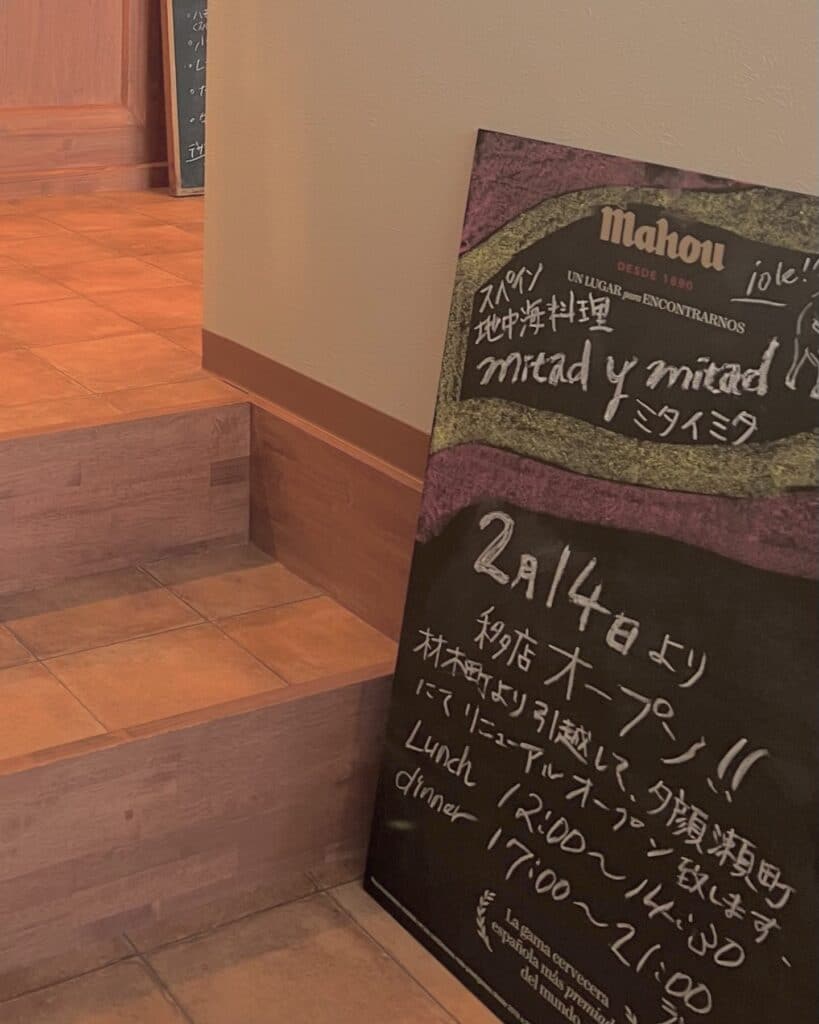 Mahou
DESDE 1890
UN LUGAR para ENCONTRARNOS
¡ole!!
スペイン
地中海料理
mitad y mitad
ミタイミタ
2月14日より
移店オープン!!
材木町より引越して、夕顔瀬町
にてリニューアルオープン致します。
Lunch 12:00~14:30
dinner 17:00~21:00
La gama cervecera
española más premiada
del mundo